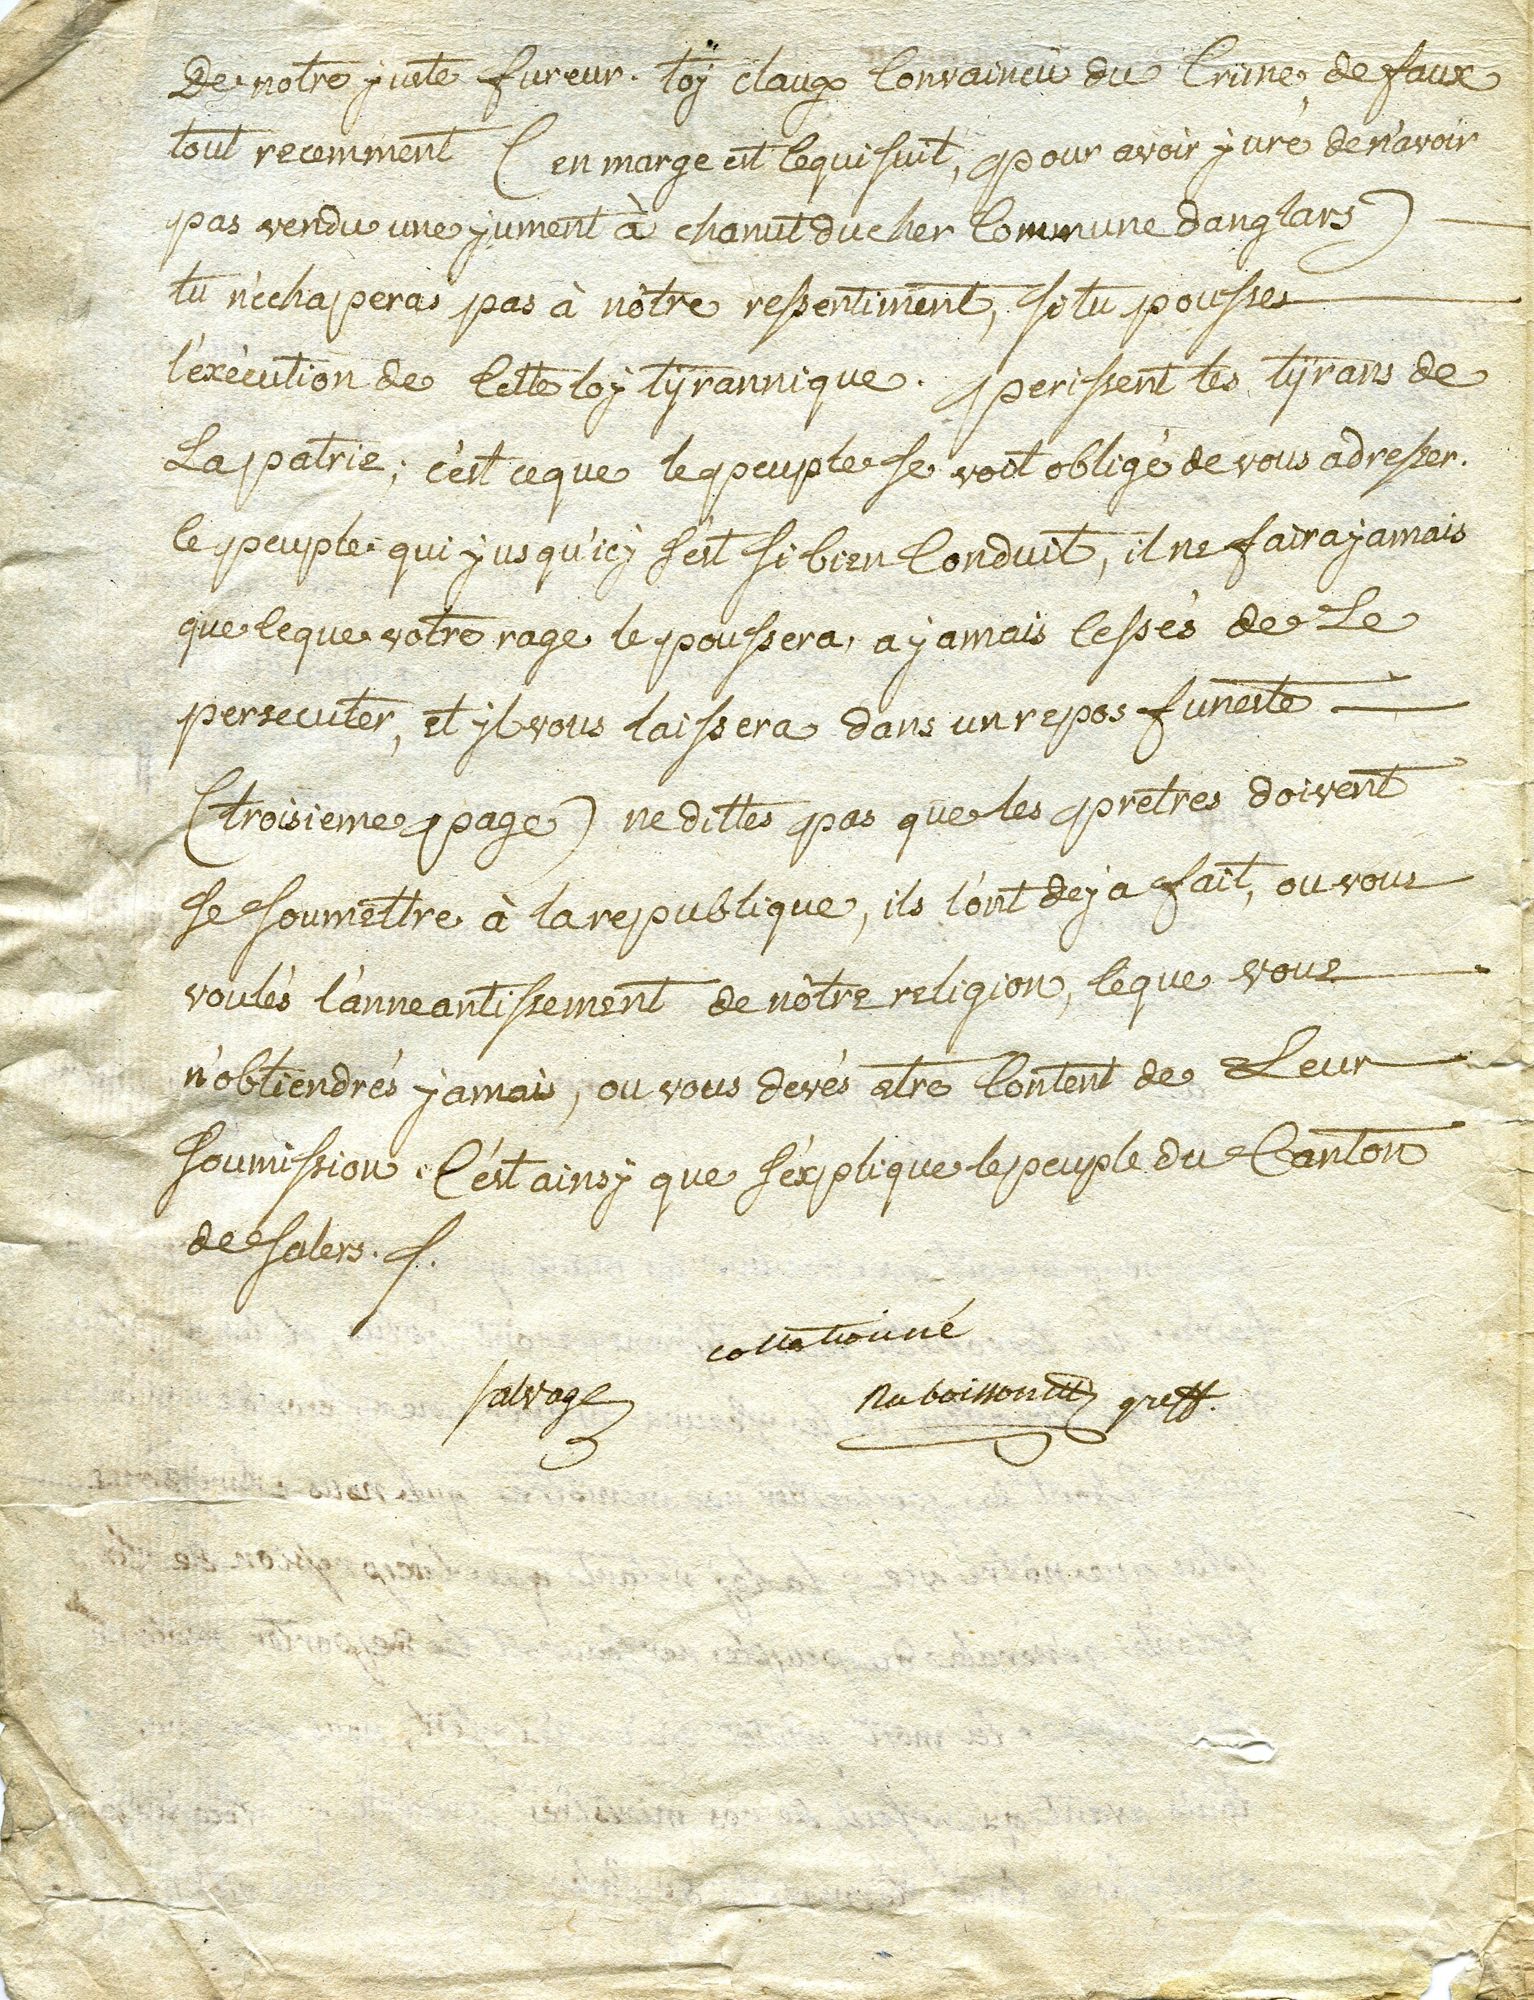 De notre juste fureur. toÿ claux Convaincù du Crime de faux
tout recemment (en marge est cequi suit, pour avoir juré de n'avoir
pas vendu une jument à chanut ducher Commune danglars)
tu n'echaperas pas à nôtre ressentiment, si tu pousses
l'exécution de cette loy tÿrannique. perissent les tÿrans de
La patrie; c'est ceque le peuple se voit obligé de vous adresser.
le peuple qui jusqu'icy s'est si bien Conduit, il ne faira jamais
que ceque votre rage le poussera, a jamais cessés de Le
persecuter, et il vous laissera dans un repos funeste
(troisieme page) ne dittes pas que les prêtres doivent
se soumettre à la republique, ils l'ont deja fait, ou vous
voulés l'anneantissement de nôtre religion, ceque vous
n'obtiendrés jamais, ou vous devés etre Content de Leur
soumission. C'est ainsy que s'explique le peuple du Canton
de salers. /.
collationné
salvage
Raboisson greff.